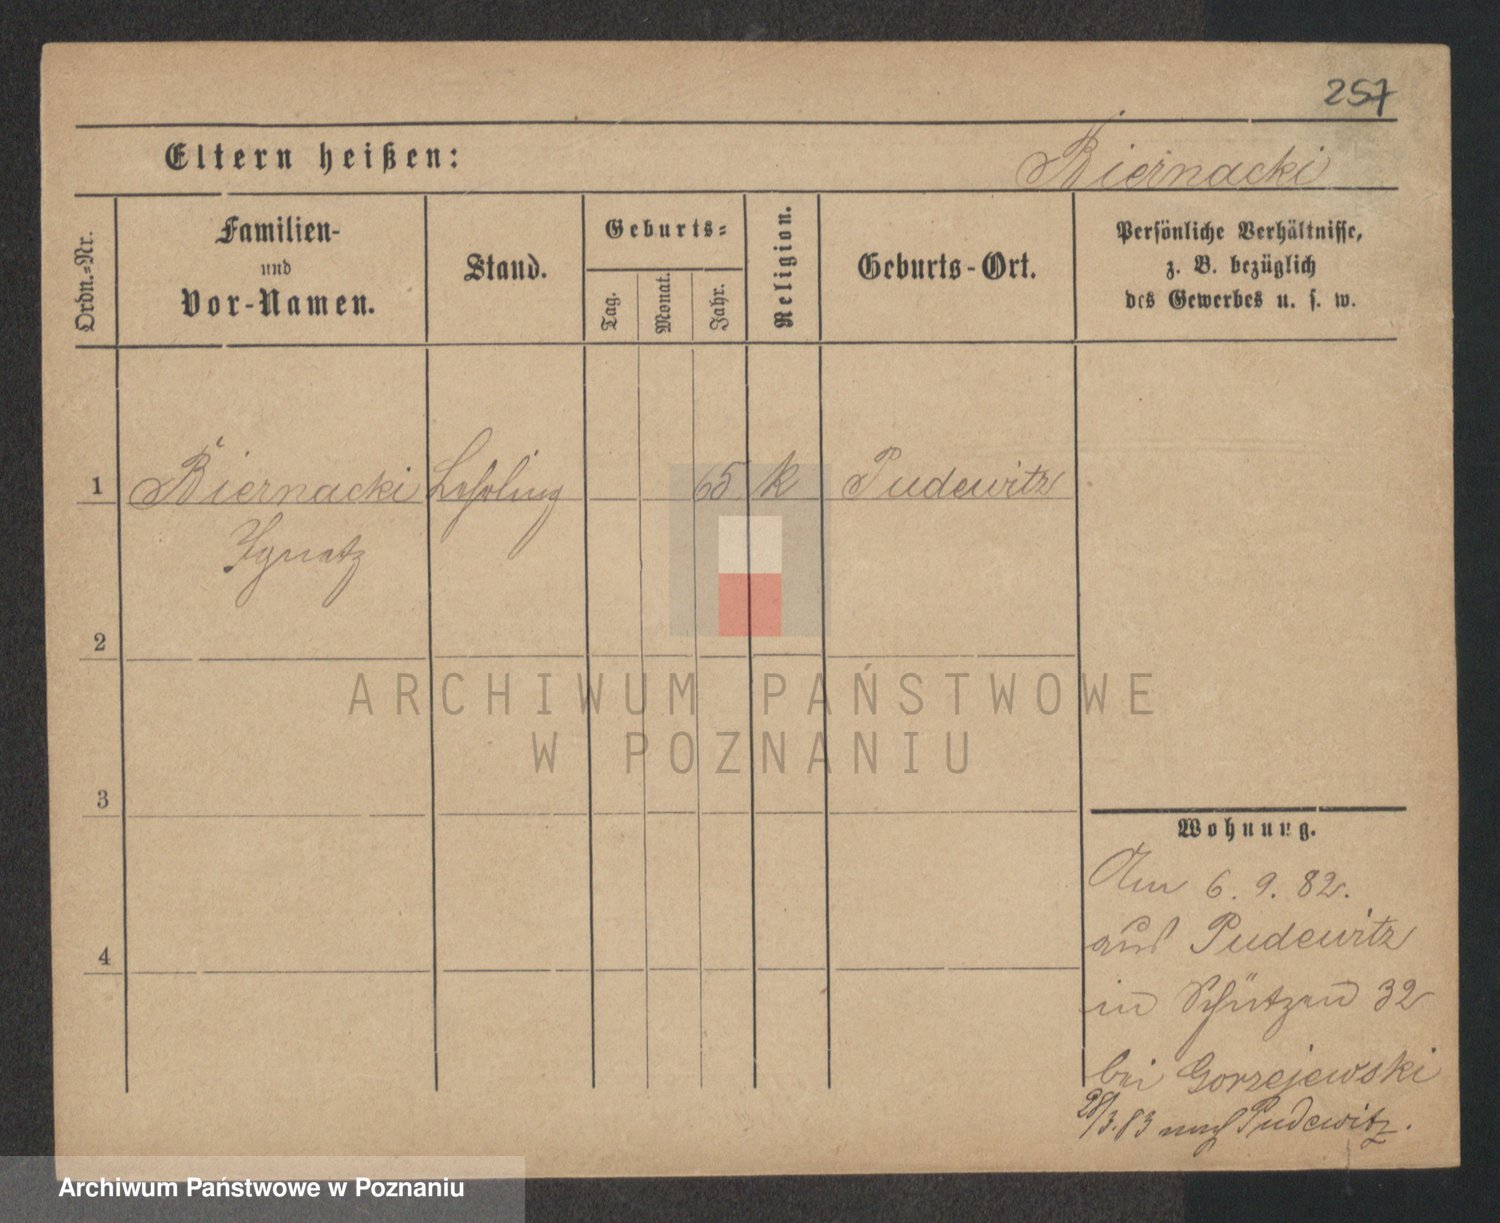 257
Eltern heißen:
Biernacki
Ordn.-Nr.
Familien-
und
Vor-Namen.
Stand.
Geburts-
Tag.
Monat.
Jahr.
Religion.
Geburts-Ort.
Persönliche Verhältnisse,
z. B. bezüglich
des Gewerbes u. s. w.
1 Biernacki Lehrling 65 k Pudewitz
Ignatz
2
ARCHIWUM PAŃSTWOWE
W POZNANIU
3
Wohnung.
Am 6. 9. 82.
aus Pudewitz
in Schützen 32
4
bei Gorzejewski
28/3.83 nach Pudewitz.
Archiwum Państwowe w Poznaniu